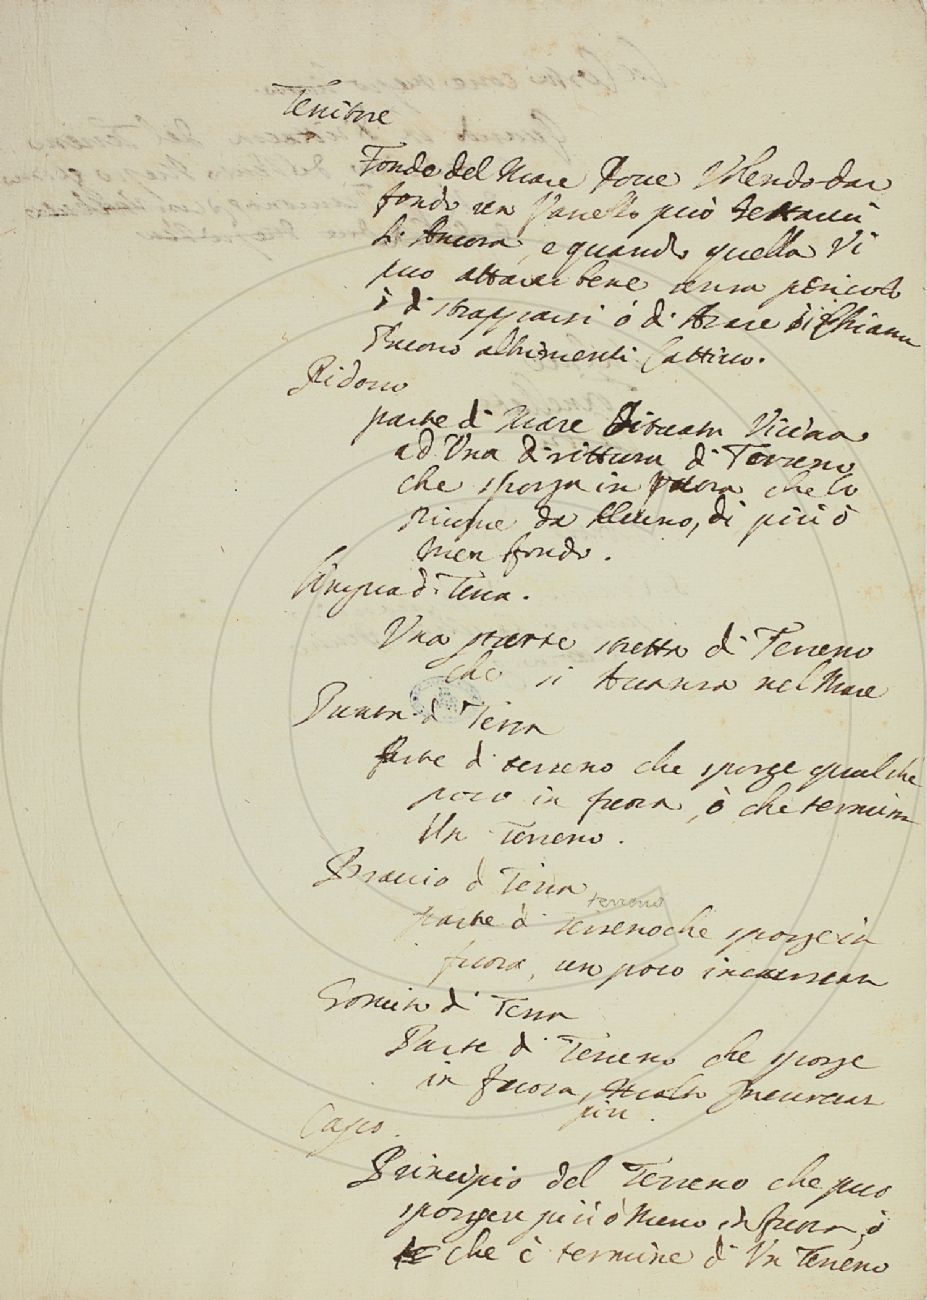 Tenitore
Fondo del Mare Dove Volendo dar
fondo un Vascello può gettarvi
L'Ancora, e quando quella Vi
può attacar bene senza pericolo
ò di strapparsi ò di Arare si Chiama
Buono altrimenti Cattivo.
Ridosso
parte di Mare Situata Vicina
ad Una dirittura di Terreno
che sporga in fuora che lo
cuopre da Vento, di più ò
men fondo.
Lingua di Terra.
Una parte stretta di Terreno
che si Avanza nel Mare
Punta di Terra
Parte di terreno che sporge qualche
poco in fuora, ò che termina
Un Terreno.
Braccio di Terra
terreno
parte di terreno che sporge in
fuora, un poco incurvata
Gomito di Terra
Parte di Terreno che sporge
in fuora, Molto Incurvata
più.
Capo.
Principio del Terreno che può
sporgere più ò Meno in fuora, ò
che è termine di Un Terreno